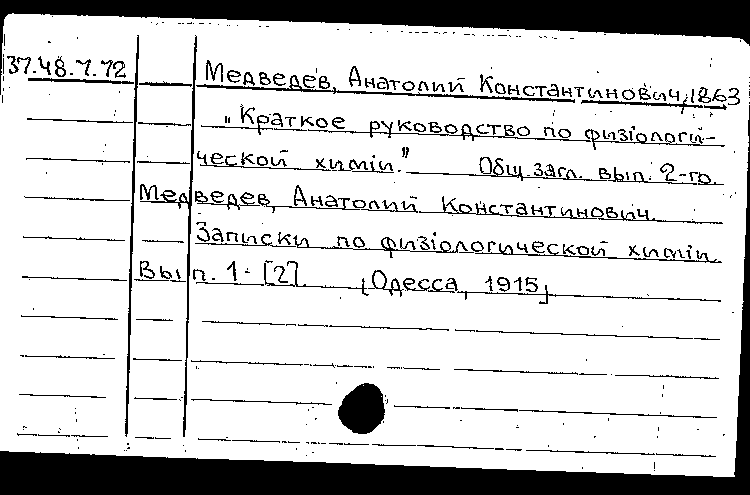 37.48.7.72 Медведев, Анатолий Константинович, 1863
„Краткое руководство по физіологи-
ческой химіи.” Общ. загл. вып. 2-го.
Медведев, Анатолий Константинович.
Записки по физіологической химіи.
Вып. 1- [2]. [Одесса, 1915]